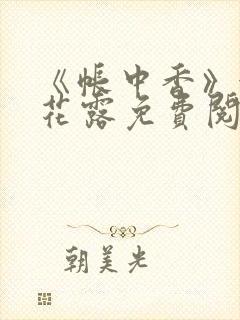 《帐中香》
花露免费阅
朝美光